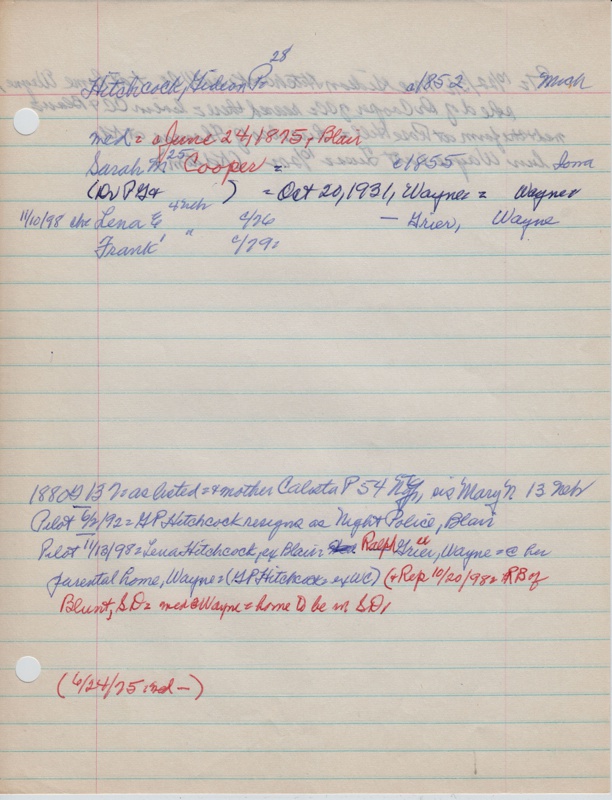 28
Hitchcock, Gideon P= c1852 Mich
med = June 24, 1875, Blair
25
Sarah M. Cooper = c1855 Iowa
(Dr P G+ ) = Oct 20, 1931, Wayne = Wayne
11/10/98 Lena E Neb c/76 — Grier, Wayne
Frank " c/79=
1880 13 = as listed = + mother Calista P 54 NY, sis Mary N 13 Neb
Pilot 6/2/92 = GP Hitchcock resigns as Night Police, Blair
Pilot 11/18/98 = Lena Hitchcock, ex Blair Ralph Grier, Wayne = @ her
parental home, Wayne = (GP Hitchcock = ex WC) (+ Rep 10/20/98 = RB of
Blunt, SD = med @ Wayne = home to be in SD,
(6/24/75 —)